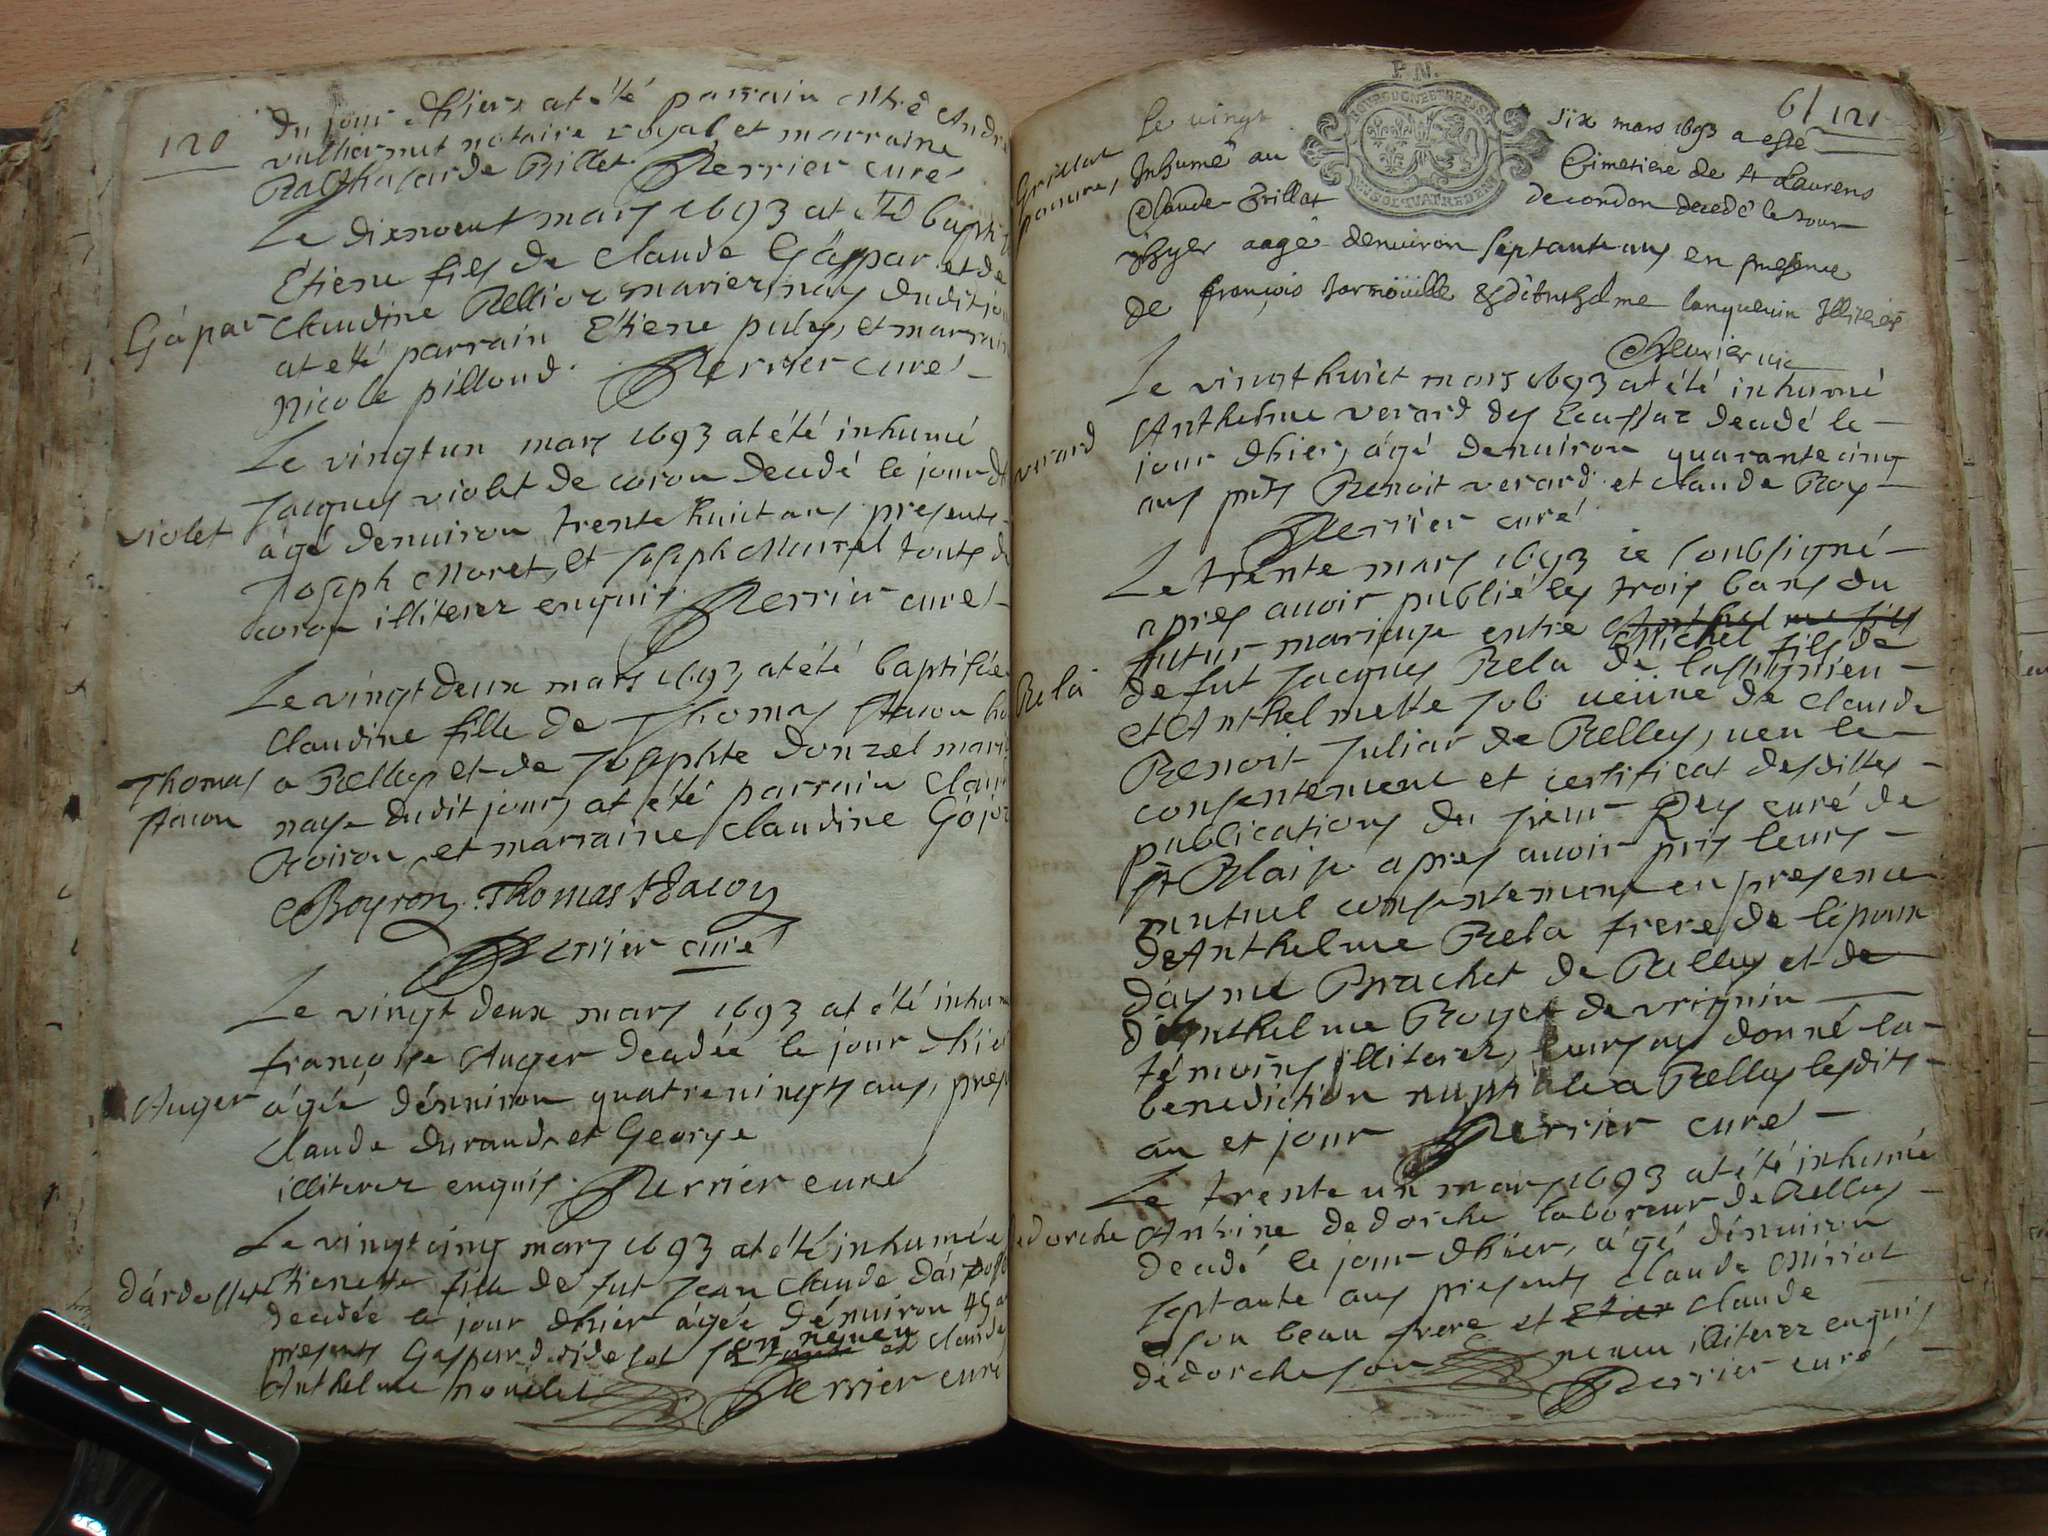 120
du jour d'hier at été parrain Mtre Andre
vulliermet notaire royal et marraine
Balthasarde Billet. Perrier curé
Le dixneuf mars 1693 at été bapti
Etiene fils de Claude Gáspar et de
Gápar
Claudine Bellior mariez, nay dudit jou
at eté parrain Etiene puly, et marrain
Nicole pilloud. Perrier curé
Le vingtun mars 1693 at été inhumé
Jacques violet de coron decedé le jour d
violet
ágé denuiron trente huict ans presents
Joseph Moret, et Joseph touts de
coron illiterez enquis Perrier curé
Le vingt deux mars 1693 at été baptisée
Claudine fille de Thomas
Thomas
a Belley et de Josephte donzel mari
naye dudit jour, at été parrain Clau
Boiron, et marraine Claudine
Boyron. Thomas
Perrier curé
Le vingt deux mars 1693 at été inhum
françoise Auger decedée le jour d'hier
Auger
ágée dénuiron quatre uingts ans, pres
Claude durand, et George
illiterez enquis. Perrier curé
Le vingt cinq mars 1693 at été inhumée
Dárdosset
Etienette fille de fut Jean Claude Dárdoss
decedée le jour d'hier ágée dénuiron 45 a
presents Gaspar son neueu et Claude
Anthelme Perrier curé
6/ 121
P. N.
le vingt six mars 1693 a esté
Grillat
Inhumé au Cimetiere de st Laurens
pauure
Claude Grillat de cordon decedé le Jour
d'hyer aagé denuiron septante ans en presence
de françois et d'Anthelme Illiterés
uic
Le vingt huict mars 1693 at été inhumé
Anthelme verard des Ecassaz decedé le
verard
jour d'hier, ágé denuiron quarante cinq
ans pnts Benoit verard et Claude Roy
Perrier curé
Le trente mars 1693 ie soubsigné
apres auoir publié les trois bans du
futur mariage entre Anthelme fils
Michel fils de
Bela
defut Jacques Bela de
et Anthelmette Joli ueüue de Claude
Benoit Juliar de Belley, ueu le
consentement et certificat desdittes
publications du sieur Dey curé de
st Blaise apres auoir pris leurs
mutuel consentement en presence
de Anthelme Bela frere de l'époux
d'áyme Brachet de Belley et de
d'Anthelme Royer de vrignin
témoins illiterez, leurs ay donné la
benediction nuptiale a Belley lesdits
an et jour Perrier curé
Le trente un mars 1693 at été inhumé
dedorche
Antoine de dorche laboreur de Belley
decedé le jour d'hier, ágé dénuiron
septante ans presents Claude
son beau frere et Claude
dédorche son neueu illiterez enquis
Perrier curé